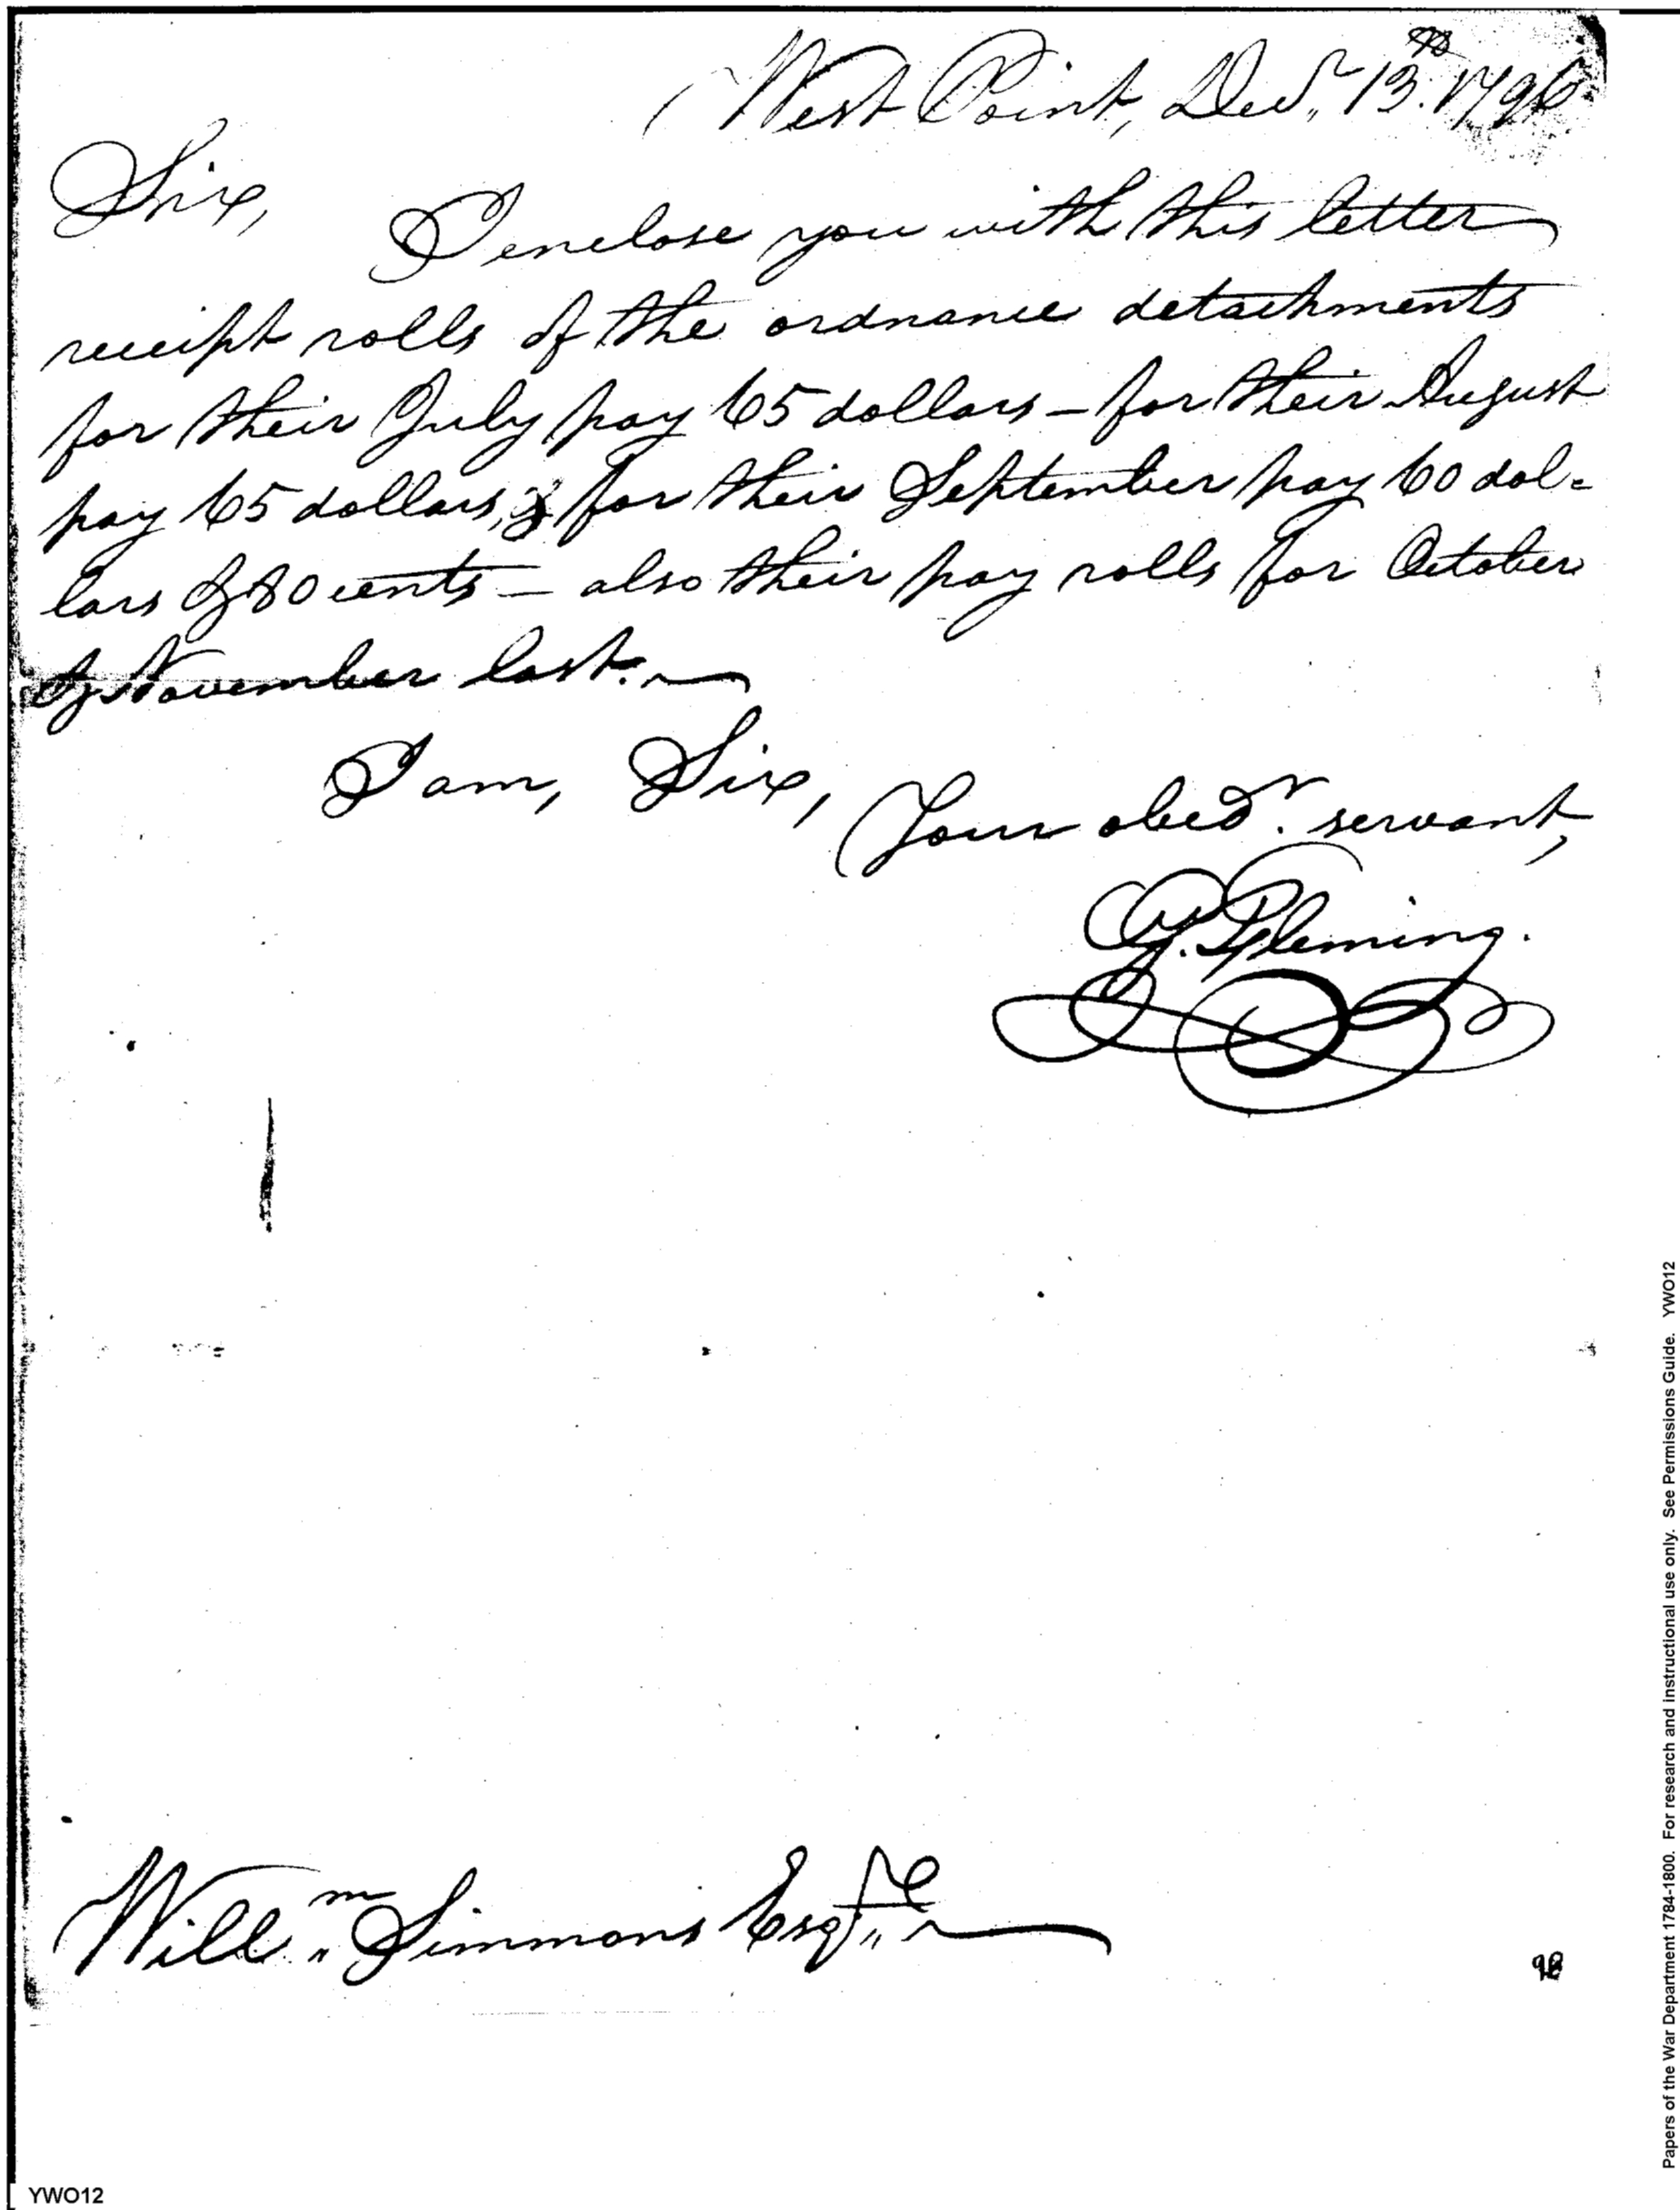 West Point, Decr. 13th. 1796.
Sir,
I enclose you with this letter
receipt rolls of the ordnance detachments
for their July pay 65 dollars – for their August
pay 65 dollars, & for their September pay 60 dol-
lars & 80 cents – also their pay rolls for October
& November last.
I am, Sir,
Your obedt. servant,
G. Fleming.
Willm. Simmons Esqre.
98
YWO12
Papers of the War Department 1784-1800. For research and instructional use only. See Permissions Guide. YWO12